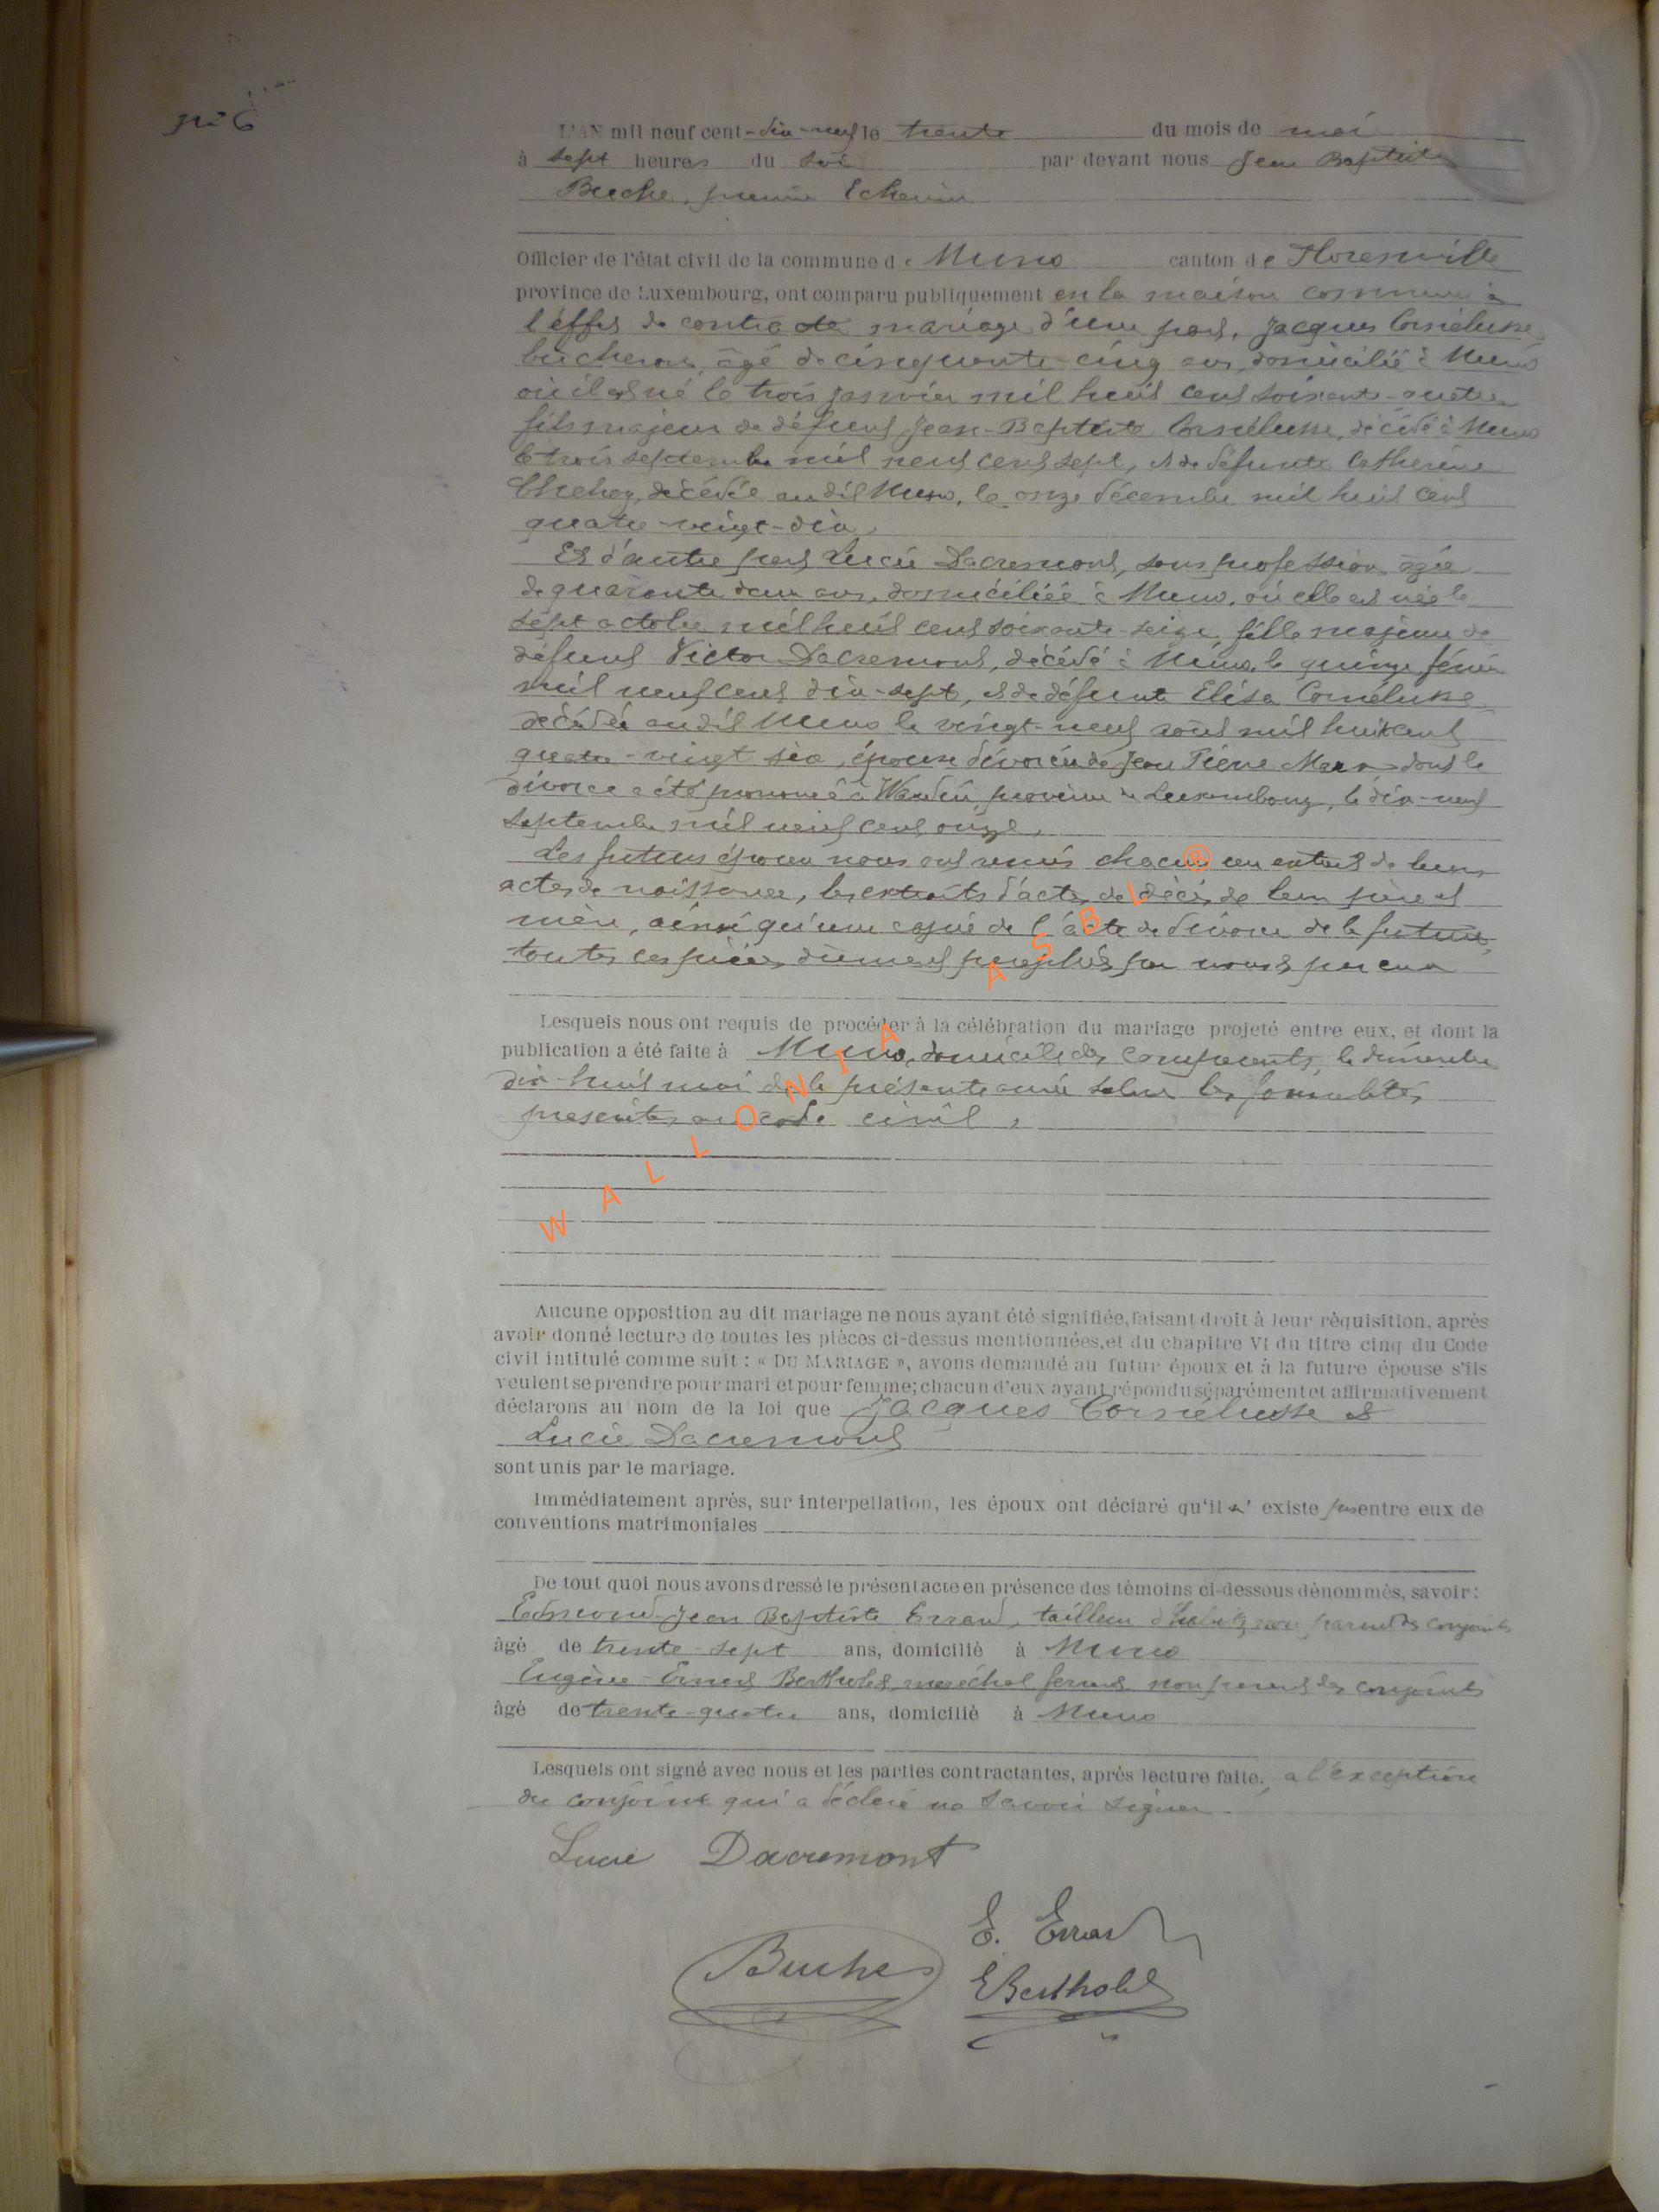 n° 6
L'AN mil neuf cent-dix-neuf le trente du mois de mai
à sept heures du soir par devant nous Jean Baptiste
Buche, premier Echevin
Officier de l'état civil de la commune de Muno canton de Florenville
province de Luxembourg, ont comparu publiquement en la maison commune à
l'effet de contracter mariage d'une part, Jacques Cornélusse,
bûcheron, âgé de cinquante-cinq ans, domicilié à Muno
où il est né le trois janvier mil huit cent soixante-quatre
fils majeur de défunt Jean-Baptiste Cornélusse, décédé à Muno
le trois septembre mil neuf cent sept, et de défunte Catherine
décédée audit Muno, le onze décembre mil huit cent
quatre-vingt-dix,
Et d'autre part Lucie Dacremont, sans profession, âgée
de quarante deux ans, domiciliée à Muno, où elle est née le
sept octobre mil huit cent soixante-seize, fille majeure de
défunt Victor Dacremont, décédé à Muno, le quinze février
mil neuf cent dix-sept, et de défunte Elisa Cornélusse
décédée audit Muno le vingt-neuf août mil huit cent
quatre-vingt six, épouse divorcée de Jean Pierre Marx dont le
divorce a été prononcé à Wardin, province de Luxembourg, le dix-neuf
septembre mil neuf cent onze,
Les futurs époux nous ont remis chacun un extrait de leurs
actes de naissance, les extraits d'acte de décès de leur père et
mère, ainsi qu'une copie de l'acte de divorce de la future,
toutes ces pièces dûment paraphées par nous et par eux
Lesquels nous ont requis de procéder à la célébration du mariage projeté entre eux, et dont la
publication a été faite à Muno, domicile des comparants, le dimanche
dix-huit mai de la présente année selon les formalités
prescrites au code civil,
WALLONIA ASBL ®
Aucune opposition au dit mariage ne nous ayant été signifiée, faisant droit à leur réquisition, après
avoir donné lecture de toutes les pièces ci-dessus mentionnées, et du chapitre VI du titre cinq du Code
civil intitulé comme suit : « DU MARIAGE », avons demandé au futur époux et à la future épouse s'ils
veulent se prendre pour mari et pour femme; chacun d'eux ayant répondu séparément et affirmativement
déclarons au nom de la loi que Jacques Cornélusse et
Lucie Dacremont
sont unis par le mariage.
Immédiatement après, sur interpellation, les époux ont déclaré qu'il n' existe pas entre eux de
conventions matrimoniales
De tout quoi nous avons dressé le présent acte en présence des témoins ci-dessous dénommés, savoir :
Edmond-Jean Baptiste Errard, tailleur d'habits, non parent des conjoints
âgé de trente-sept ans, domicilié à Muno
Eugène-Ernest Bertholet, maréchal ferrant non parent des conjoints
âgé de trente-quatre ans, domicilié à Muno
Lesquels ont signé avec nous et les parties contractantes, après lecture faite, a l'exception
du conjoint qui a déclaré ne savoir signer.
Lucie Dacremont
E. Errard
Buche
E Bertholet